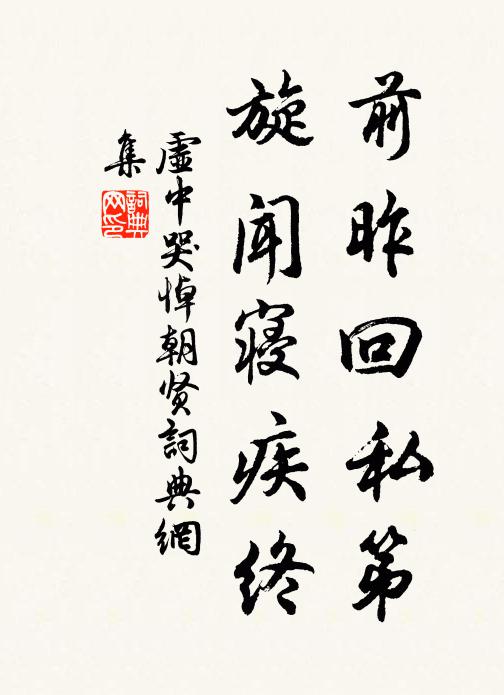 前昨回私第
旋闻寝疾终
虚中哭悼朝贤詞典網
集
詞典
网印